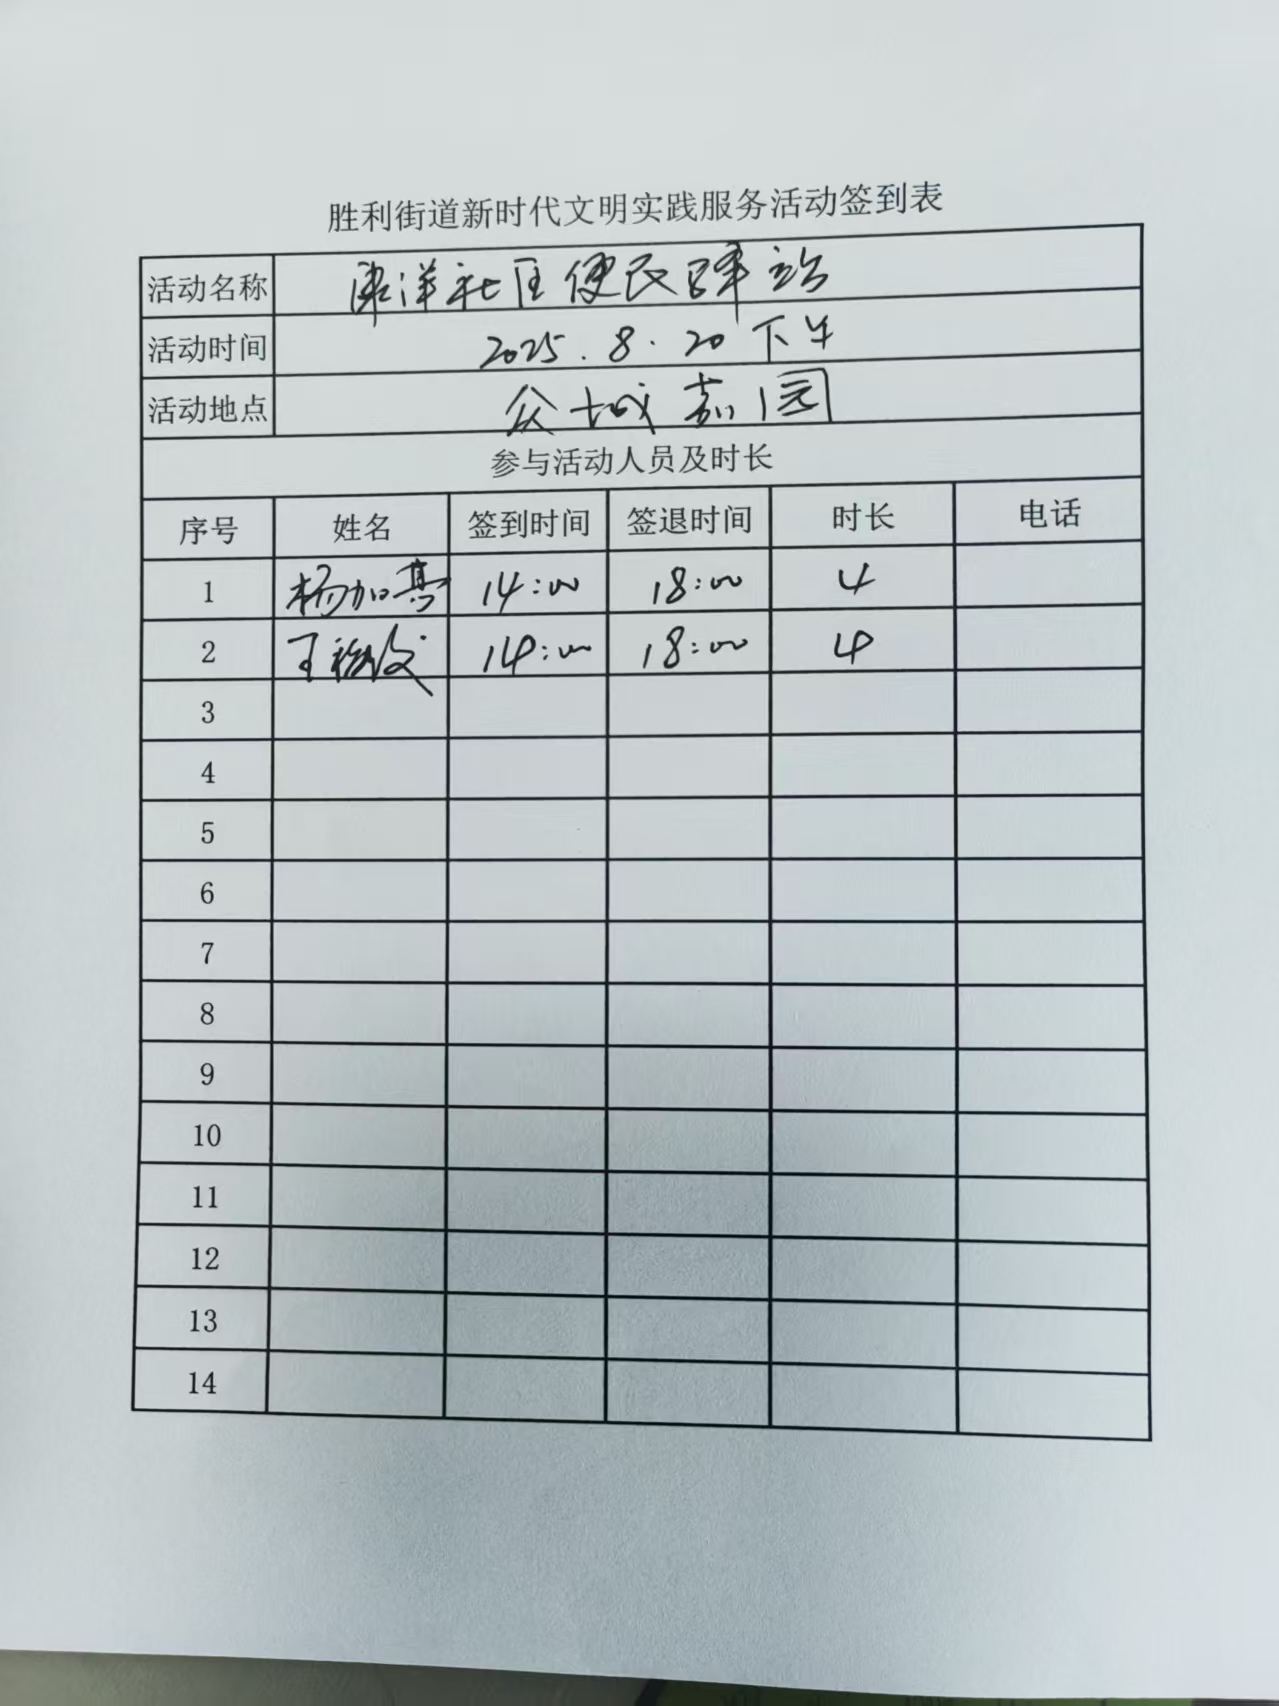 胜利街道新时代文明实践服务活动签到表
活动名称 海洋社区便民驿站
活动时间 2025.8.20 下午
活动地点 众城嘉园
参与活动人员及时长
序号 姓名 签到时间 签退时间 时长 电话
1 杨加 14:00 18:00 4
2 王 14:00 18:00 4
3
4
5
6
7
8
9
10
11
12
13
14